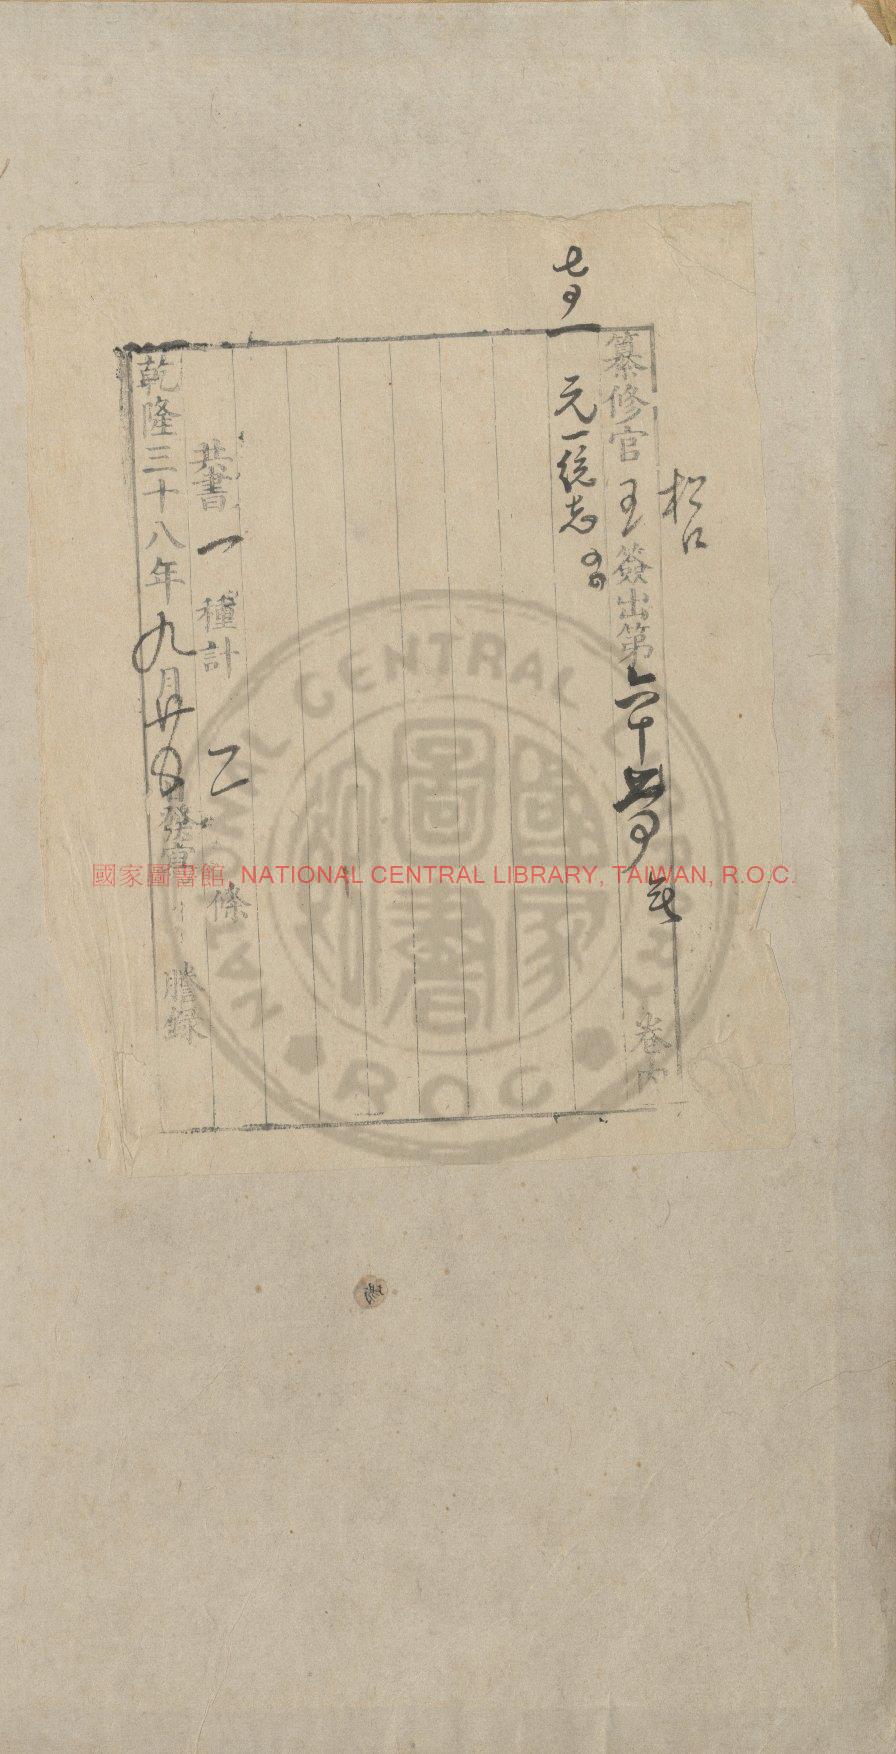 纂修官王簽出第六千 卷內
元一統志
共書一種計二條
乾隆三十八年九月廿 日發寫 謄錄
國家圖書館, NATIONAL CENTRAL LIBRARY, TAIWAN, R.O.C.
NATIONAL CENTRAL LIBRARY
R.O.C
國家圖書